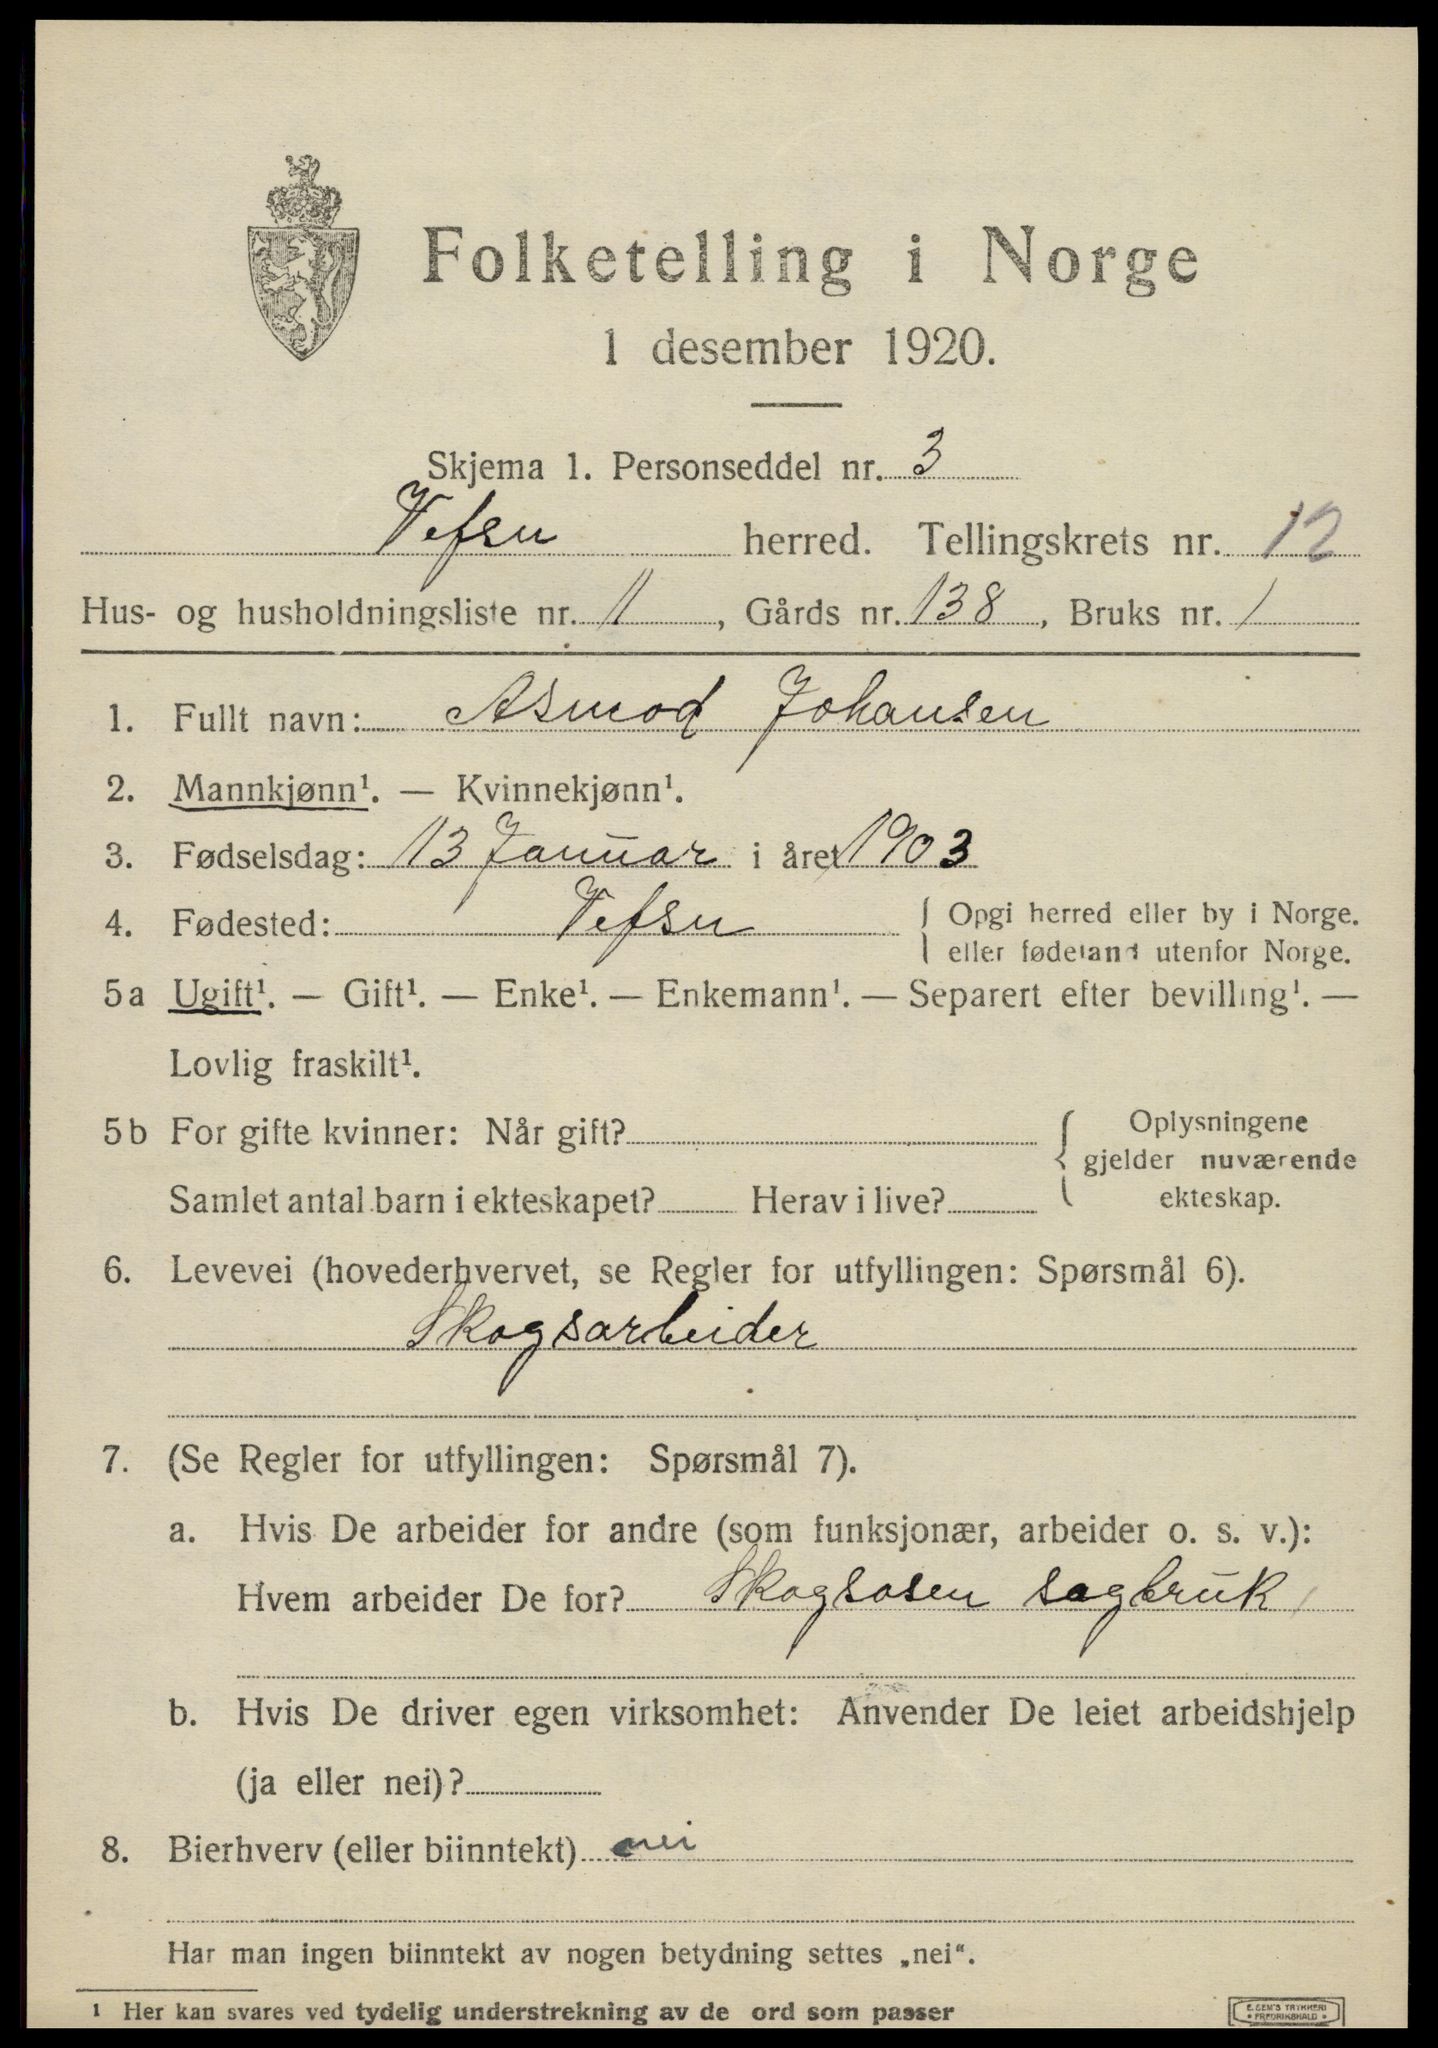 Folketelling i Norge
1 desember 1920.
Skjema 1. Personseddel nr. 3
Vefsn herred. Tellingskrets nr. 12
Hus- og husholdningsliste nr. 11, Gårds nr. 138, Bruks nr. 1
1. Fullt navn: Asmod Johansen
2. Mannkjønn¹. — Kvinnekjønn¹.
3. Fødselsdag: 13 Januar i året 1903
4. Fødested: Vefsn { Opgi herred eller by i Norge.
eller fødeland utenfor Norge.
5a Ugift¹. — Gift¹. — Enke¹. — Enkemann¹. — Separert efter bevilling¹. —
Lovlig fraskilt¹.
5b For gifte kvinner: Når gift?
Samlet antal barn i ekteskapet? Herav i live?
{ Oplysningene
gjelder nuværende
ekteskap.
6. Levevei (hovederhvervet, se Regler for utfyllingen: Spørsmål 6).
Skogsarbeider
7. (Se Regler for utfyllingen: Spørsmål 7).
a. Hvis De arbeider for andre (som funksjonær, arbeider o. s. v.):
Hvem arbeider De for? Skogsosen sagbruk
b. Hvis De driver egen virksomhet: Anvender De leiet arbeidshjelp
(ja eller nei)?
8. Bierhverv (eller biinntekt) nei
Har man ingen biinntekt av nogen betydning settes „nei“.
1 Her kan svares ved tydelig understrekning av de ord som passer
E. SEM'S TRYKKERI
• FREDRIKSHALD •